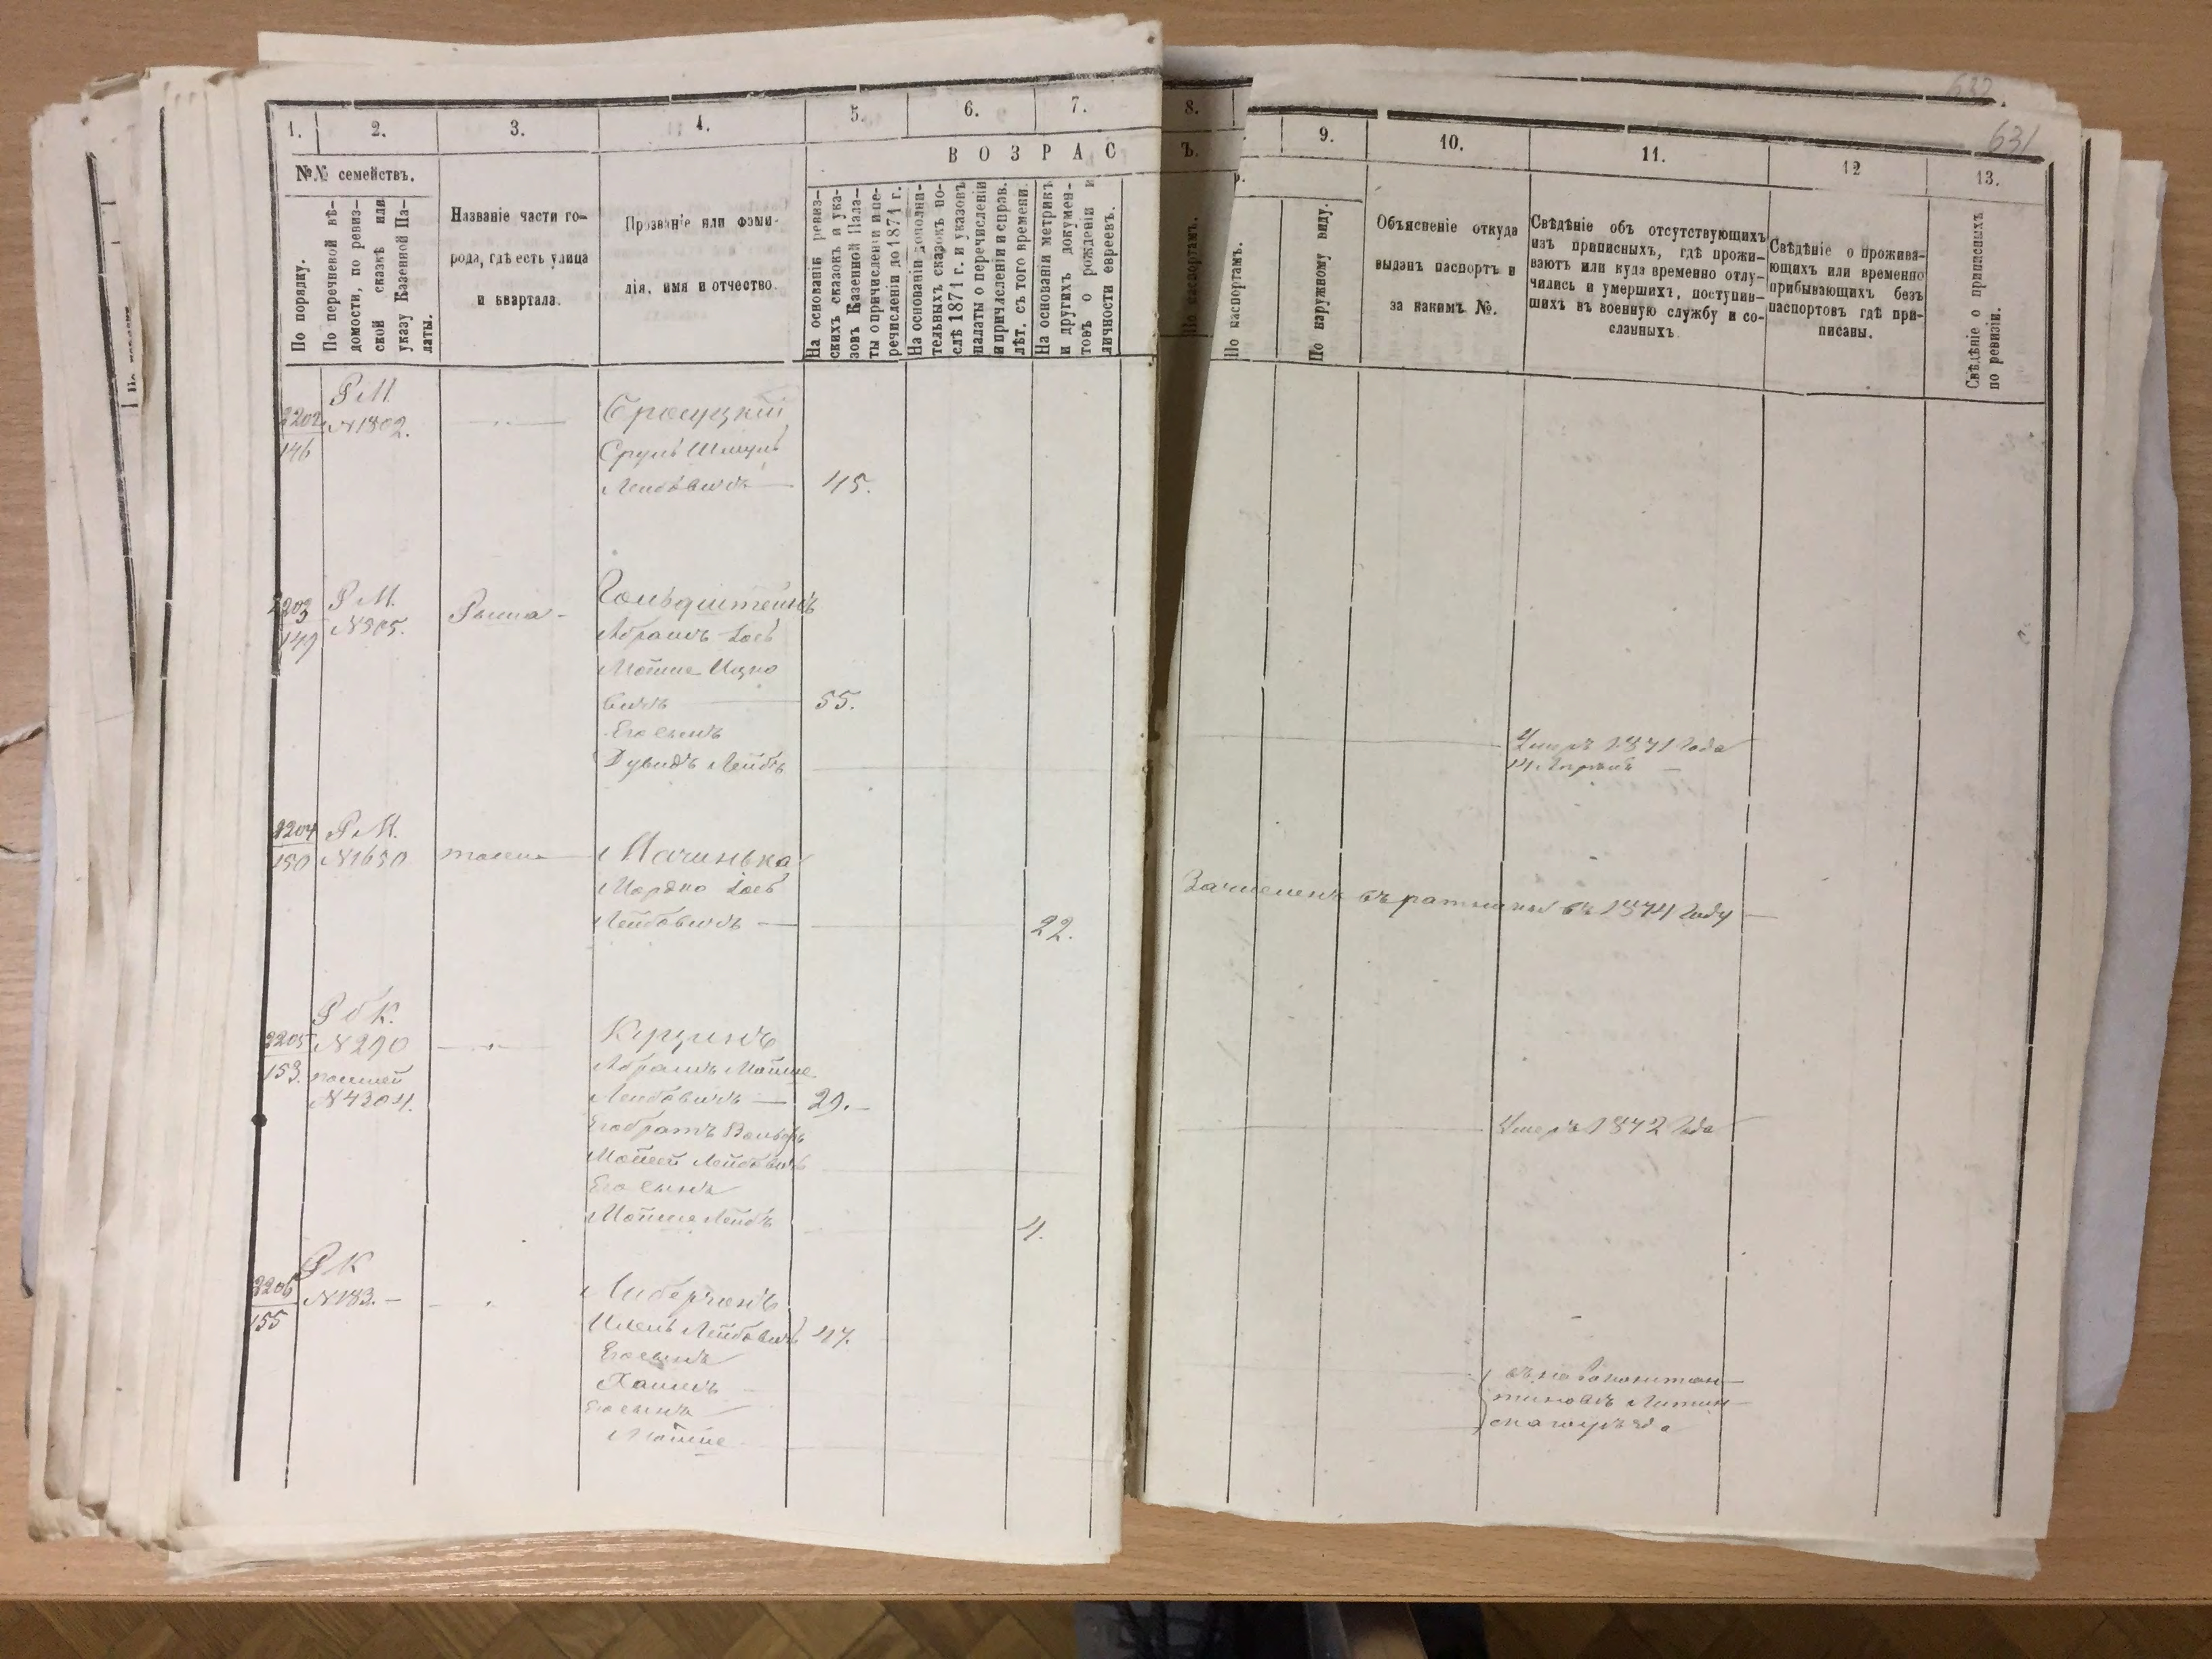 632
631
1.
2.
3.
4.
5.
6.
7.
8.
9.
10.
11.
12
13.
№№ семействъ.
По порядку.
По перечневой вѣ-
домости, по ревиз-
ской сказкѣ или
указу Казенной Па-
латы.
Названіе части го-
рода, гдѣ есть улица
и квартала.
Прозваніе или фами-
лія, имя и отчество.
ВОЗРАС
Ъ.
На основаніи ревиз-
скихъ сказокъ и ука-
зовъ Казенной Пала-
ты о причисленіи и пе-
речисленіи до 1871 г.
На основаніи дополни-
тельныхъ сказокъ по-
слѣ 1871 г. и указовъ
палаты о перечисленіи
и причисленіи и справ.
лѣт. съ того времени.
На основаніи метрикъ
и другихъ докумен-
товъ о рожденіи и
личности евреевъ.
По паспортамъ.
По паспортамъ.
По наружному виду.
Объясненіе откуда
выданъ паспортъ и
за какимъ №.
Свѣдѣніе объ отсутствующихъ
изъ приписныхъ, гдѣ прожи-
ваютъ или куда временно отлу-
чились и умершихъ, поступив-
шихъ въ военную службу и со-
сланныхъ.
Свѣдѣніе о прожива-
ющихъ или временно
прибывающихъ безъ
паспортовъ гдѣ при-
писаны.
Свѣдѣніе о приписныхъ
по ревизіи.
Р М.
2202
146
N 1302.
Сруль Шмуль
Лейбовичъ — 45.
2203
149
Р М.
N 305.
Гольдштейнъ
Абрамъ Іось
Мойше Ицко
вичъ — 55.
Его сынъ
Дувидъ Лейбъ
Умеръ 1871 Года
14 Апрѣля —
2204
150
Р М.
N 1650
Мачинька
Мордко Іось
Лейбовичъ — 22.
Зачисленъ въ ратники въ 1874 Году —
2205
153.
Р б К.
N 290
N 4304.
Абрамъ Мойше
Лейбовичъ — 29. —
Его братъ Вольфъ
Мойсей Лейбовичъ
Умеръ 1872 Года
Его сынъ
Мойше Лейбъ 4.
2206
155
Р К
N 183. —
Либерзонъ
Лейбовичъ 47.
Его сынъ
Его сынъ
Мойше